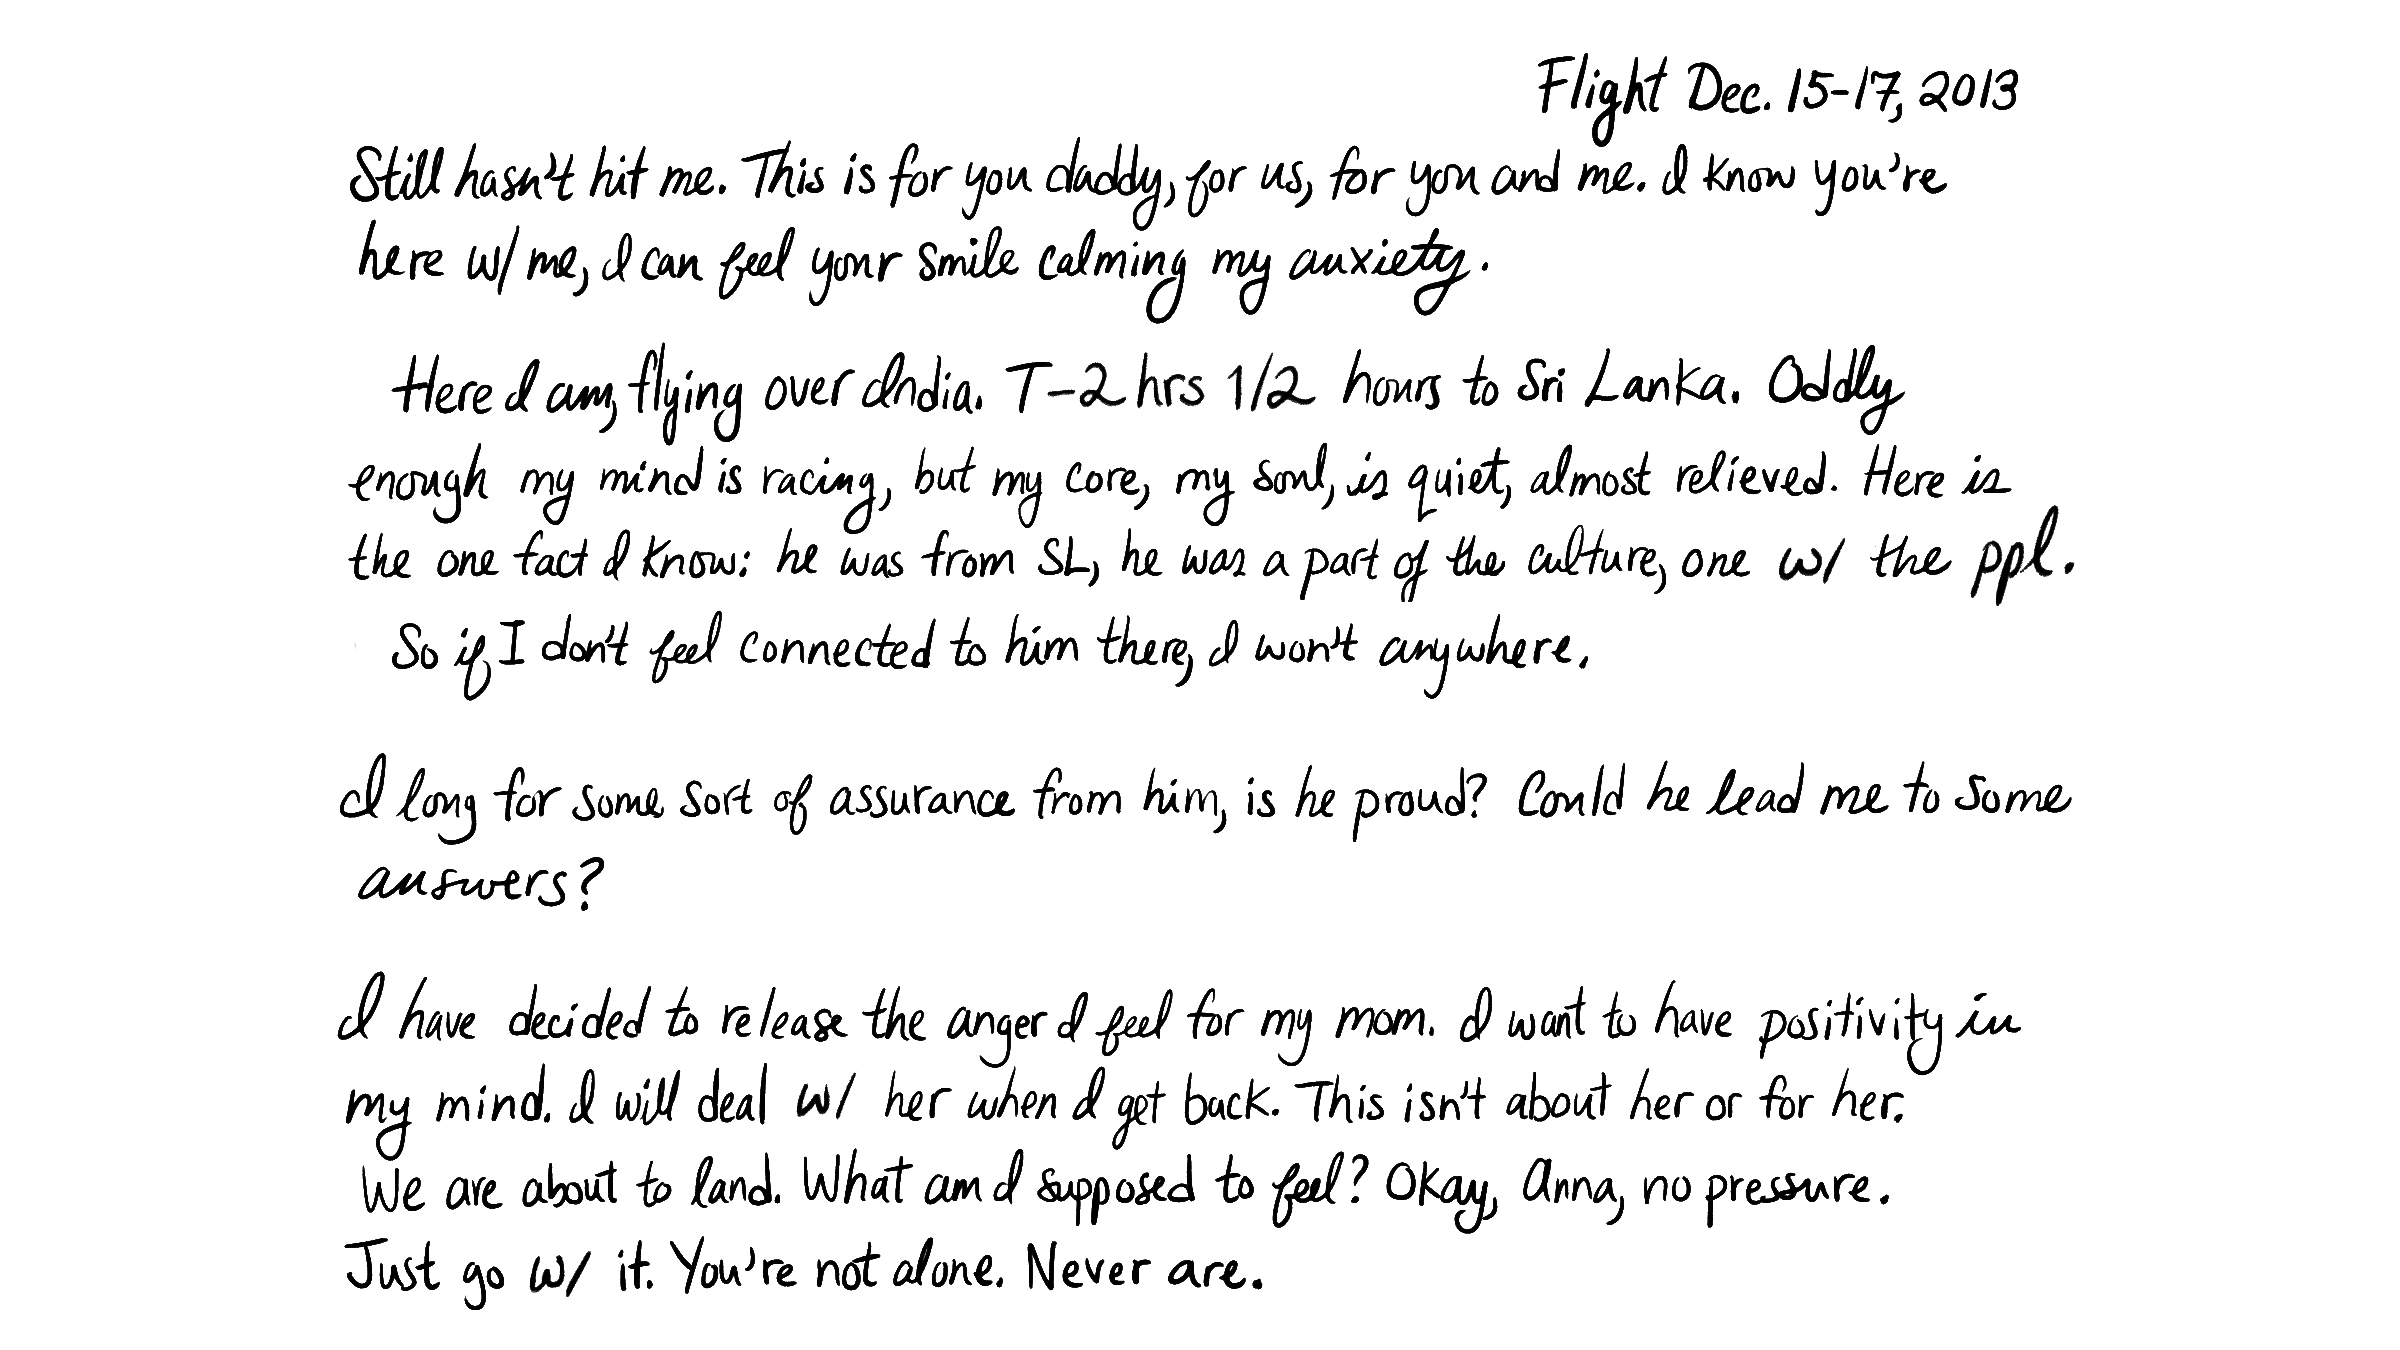 Flight Dec. 15-17, 2013
Still hasn't hit me. This is for you daddy, for us, for you and me. I know you're
here w/ me, I can feel your smile calming my anxiety.
Here I am, flying over India. T-2 hrs 1/2 hours to Sri Lanka. Oddly
enough my mind is racing, but my core, my soul, is quiet, almost relieved. Here is
the one fact I know: he was from SL, he was a part of the culture, one w/ the ppl.
So if I don't feel connected to him there, I won't anywhere.
I long for some sort of assurance from him, is he proud? Could he lead me to some
answers?
I have decided to release the anger I feel for my mom. I want to have positivity in
my mind. I will deal w/ her when I get back. This isn't about her or for her.
We are about to land. What am I supposed to feel? Okay, Anna, no pressure.
Just go w/ it. You're not alone. Never are.